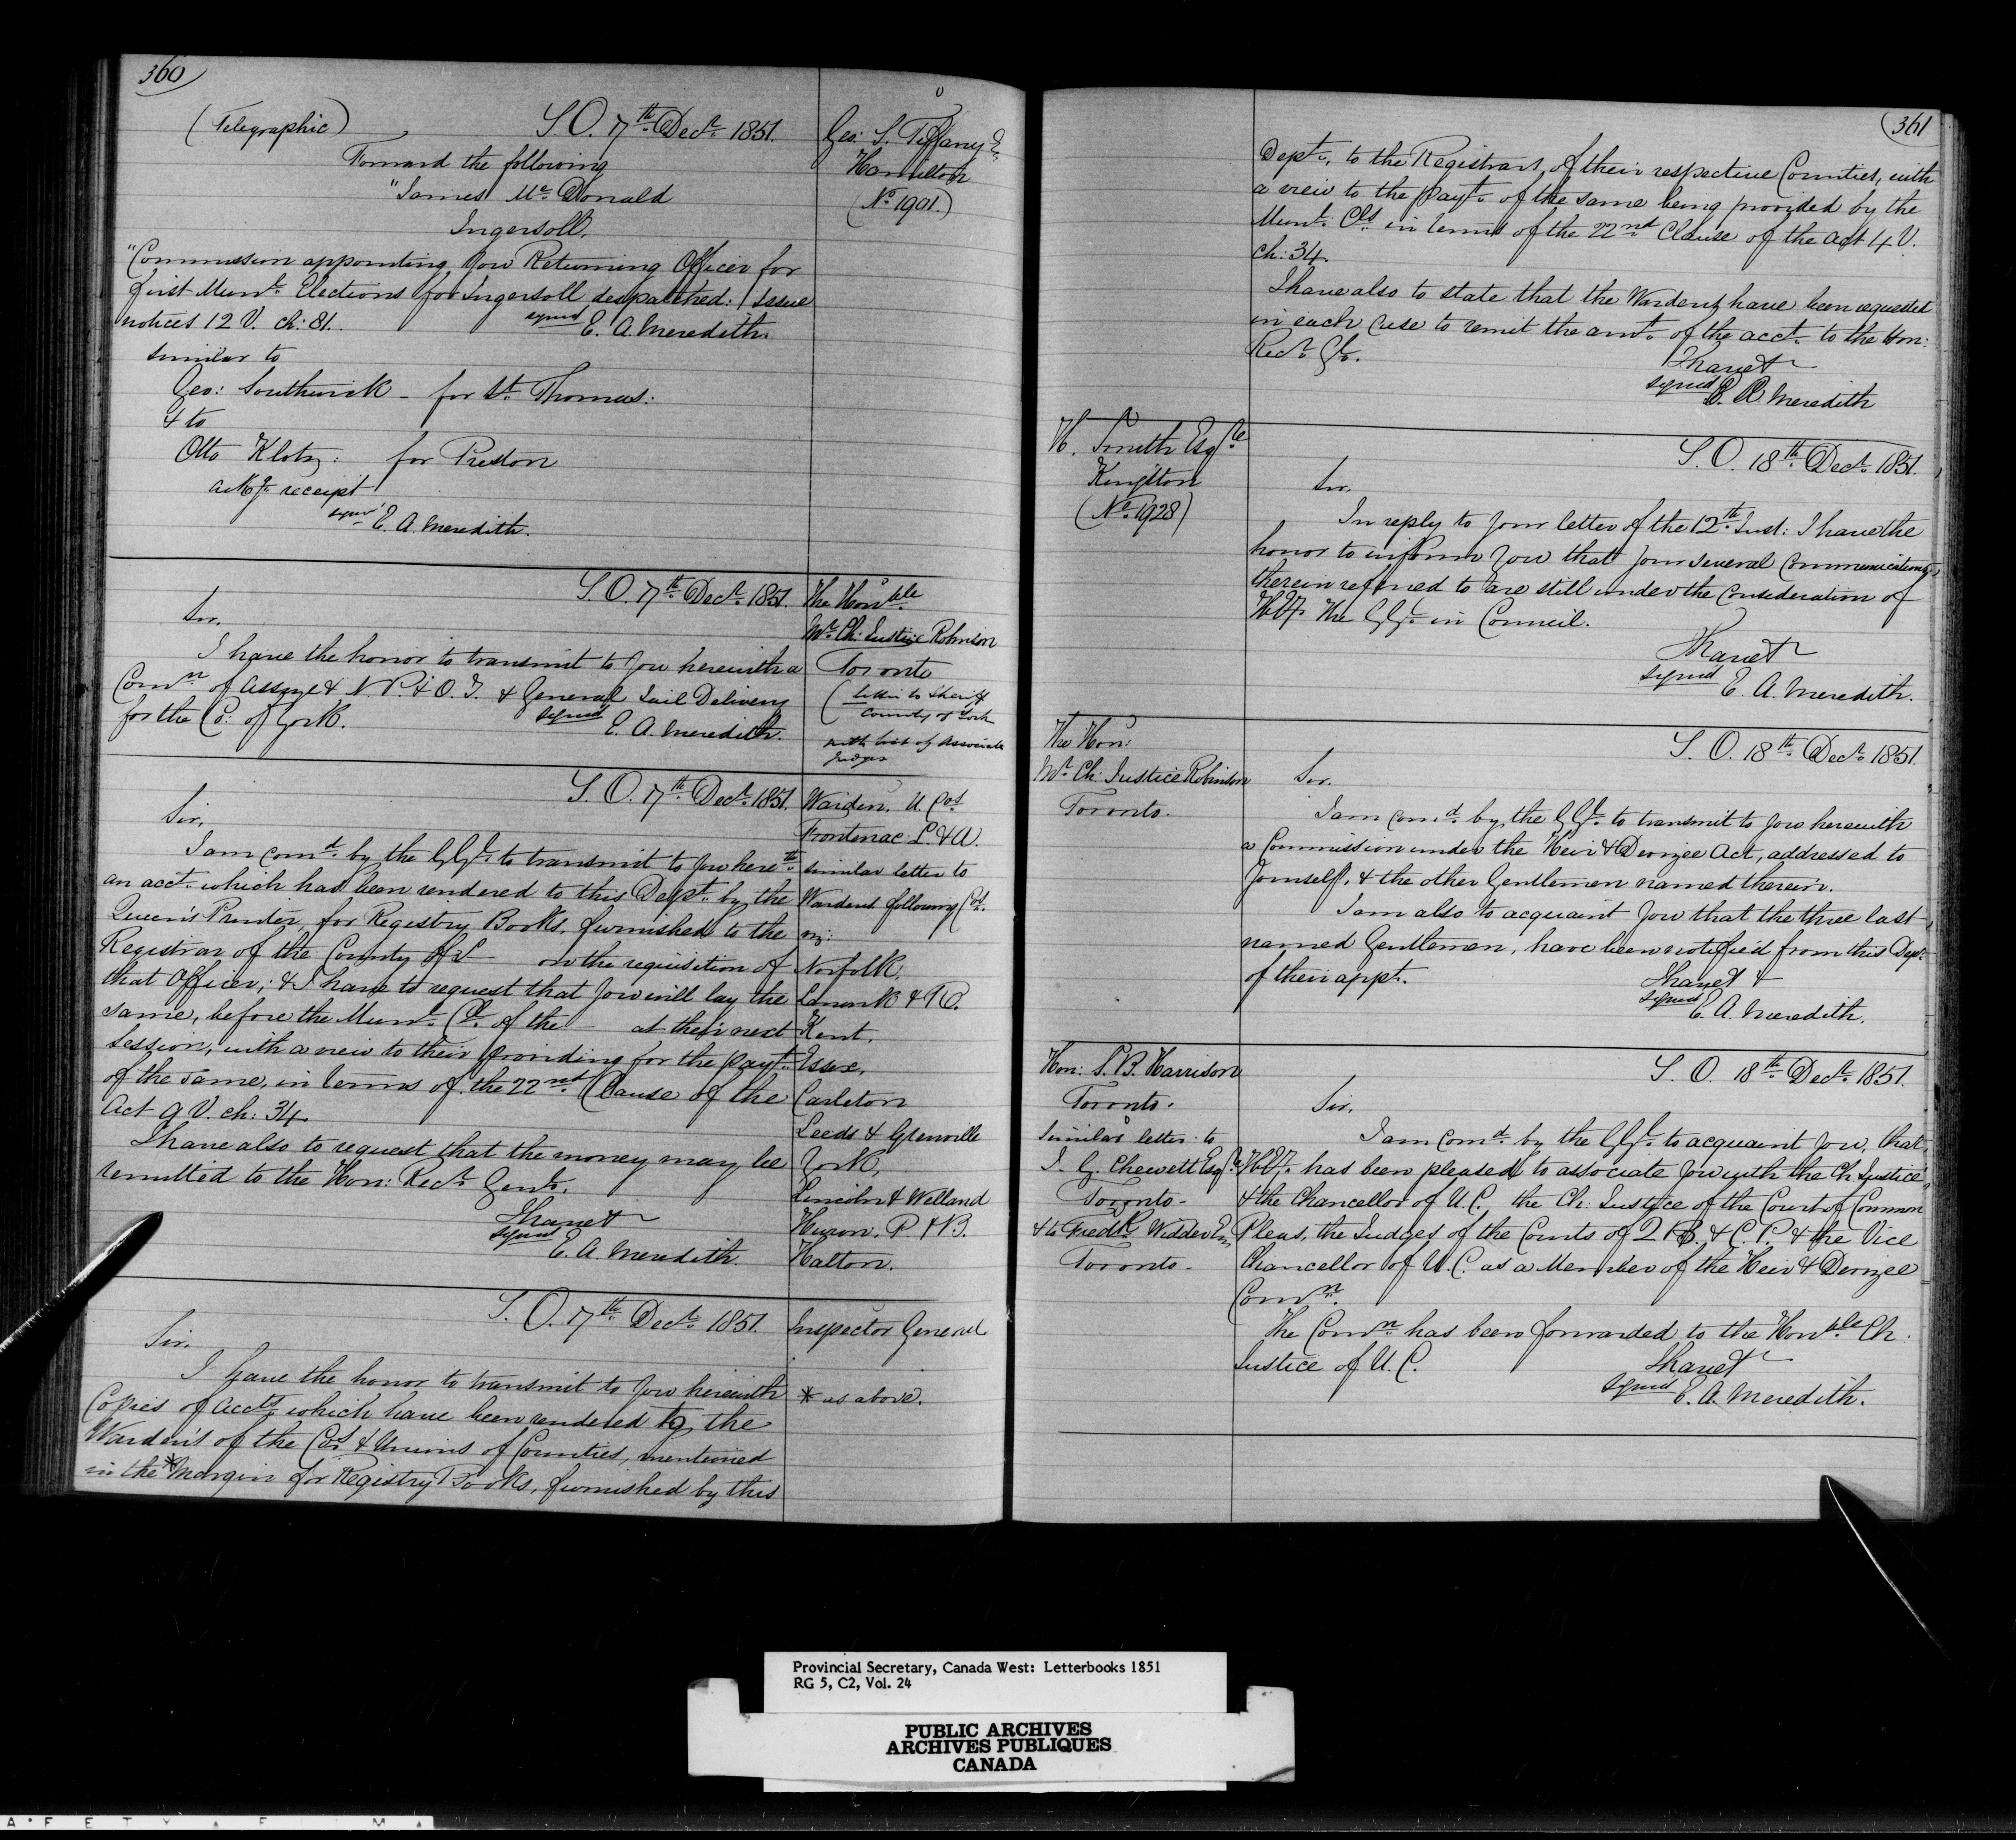 360
(Telegraphic)
S.O. 17th Decr. 1851.
Geo: S. Tiffany Er
Hamilton
(No. 1901.)
Forward the following
"James McDonald
Ingersoll.
"Commission appointing you Returning Officer for
first Munl. Elections for Ingersoll despatched: Issue
notices 12 V. ch: 81.
signed E. A. Meredith.
similar to
Geo: Southwick - for St. Thomas:
& to
Otto Klotz: for Preston
ackge. receipt
signed E. A. Meredith.
S.O. 17th Decr. 1851.
The Honble
Mr. Ch: Justice Robinson
Toronto
(letter to Sheriff
County of York
with list of Associate
Judges
Sir,
I have the honor to transmit to you herewith a
Comn. of Assize & N. P. & O. T. & General Jail Delivery
for the Co: of York.
signed E. A. Meredith.
S.O. 17th Decr. 1851.
Warden, U. Cos
Frontenac L. & A.
similar letter to
Wardens following Cos.
viz:
Norfolk,
Lanark & R.
Kent,
Essex,
Carleton
Leeds & Grenville
York,
Lincoln & Welland
Huron, P. & B.
Halton.
Sir,
I am comd. by the G.G. to transmit to you hereth.
an acct. which has been rendered to this Dept. by the
Queen's Printer, for Registry Books, furnished to the
Registrar of the County of — on the requisition of
that Officer; & I have to request that you will lay the
same, before the Munl. Cl. of the — at their next
Session, with a view to their providing for the payt.
of the same, in terms of the 22nd Clause of the
Act 9 V. ch: 34.
I have also to request that the money may be
remitted to the Hon: Recr. Genl.
I have &
signed
E. A. Meredith.
S.O. 17th Decr. 1851.
Inspector General
* as above.
Sir,
I have the honor to transmit to you herewith
Copies of Accts. which have been rendered to the
Warden's of the Cos. & Unions of Counties, mentioned
in the *Margin for Registry Books, furnished by this
361
Dept., to the Registrars of their respective Counties, with
a view to the payt. of the same being provided by the
Munl. Cls. in terms of the 22nd Clause of the Act 4 V.
ch: 34.
I have also to state that the Wardens have been requested
in each case to remit the amt. of the acct. to the Hon:
Recr. Gl.
I have &
signed E. A. Meredith
H. Smith Esqre
Kingston
(No. 1928)
S.O. 18th Decr. 1851.
Sir,
In reply to your letter of the 12th Inst: I have the
honor to inform you that your several Communications,
therein referred to are still under the Consideration of
H.Ey. the G.G. in Council.
I have &
signed
E. A. Meredith.
The Hon:
Mr. Ch: Justice Robinson
Toronto.
S.O. 18th Decr. 1851.
Sir,
I am comd. by the G.G. to transmit to you herewith
a Commission under the Heir & Devizee Act, addressed to
Yourself, & the other Gentlemen named therein.
I am also to acquaint you that the three last
named Gentlemen, have been notified from this Dept.
of their appt.
I have &
signed
E. A. Meredith.
Hon: S. B. Harrison
Toronto.
Similar letter to
J. G. Chewett Esqre
Toronto -
& to Fredk. Widder Esq
Toronto -
S.O. 18th Decr. 1851.
Sir,
I am comd. by the G.G. to acquaint you, that
H.Ey. has been pleased to associate you with the Ch. Justice
& the Chancellor of U.C., the Ch: Justice of the Court of Common
Pleas, the Judges of the Courts of Q. B. & C. P. & the Vice
Chancellor of U.C. as a Member of the Heir & Devizee
Comn.
The Comn. has been forwarded to the Honble Ch.
Justice of U.C.
I have &
signed
E. A. Meredith.
Provincial Secretary, Canada West: Letterbooks 1851
RG 5, C2, Vol. 24
PUBLIC ARCHIVES
ARCHIVES PUBLIQUES
CANADA